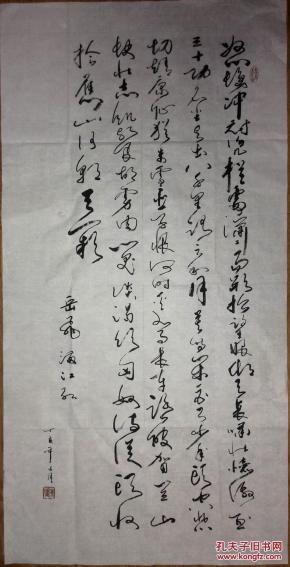 怒发冲冠凭栏处潇潇雨歇抬望眼仰天长啸壮怀激烈
三十功名尘与土八千里路云和月莫等闲白了少年头空悲
切靖康耻犹未雪臣子恨何时灭驾长车踏破贺兰山
缺壮志饥餐胡虏肉笑谈渴饮匈奴血待从头收
拾旧山河朝天阙
岳飞满江红
孔夫子旧书网